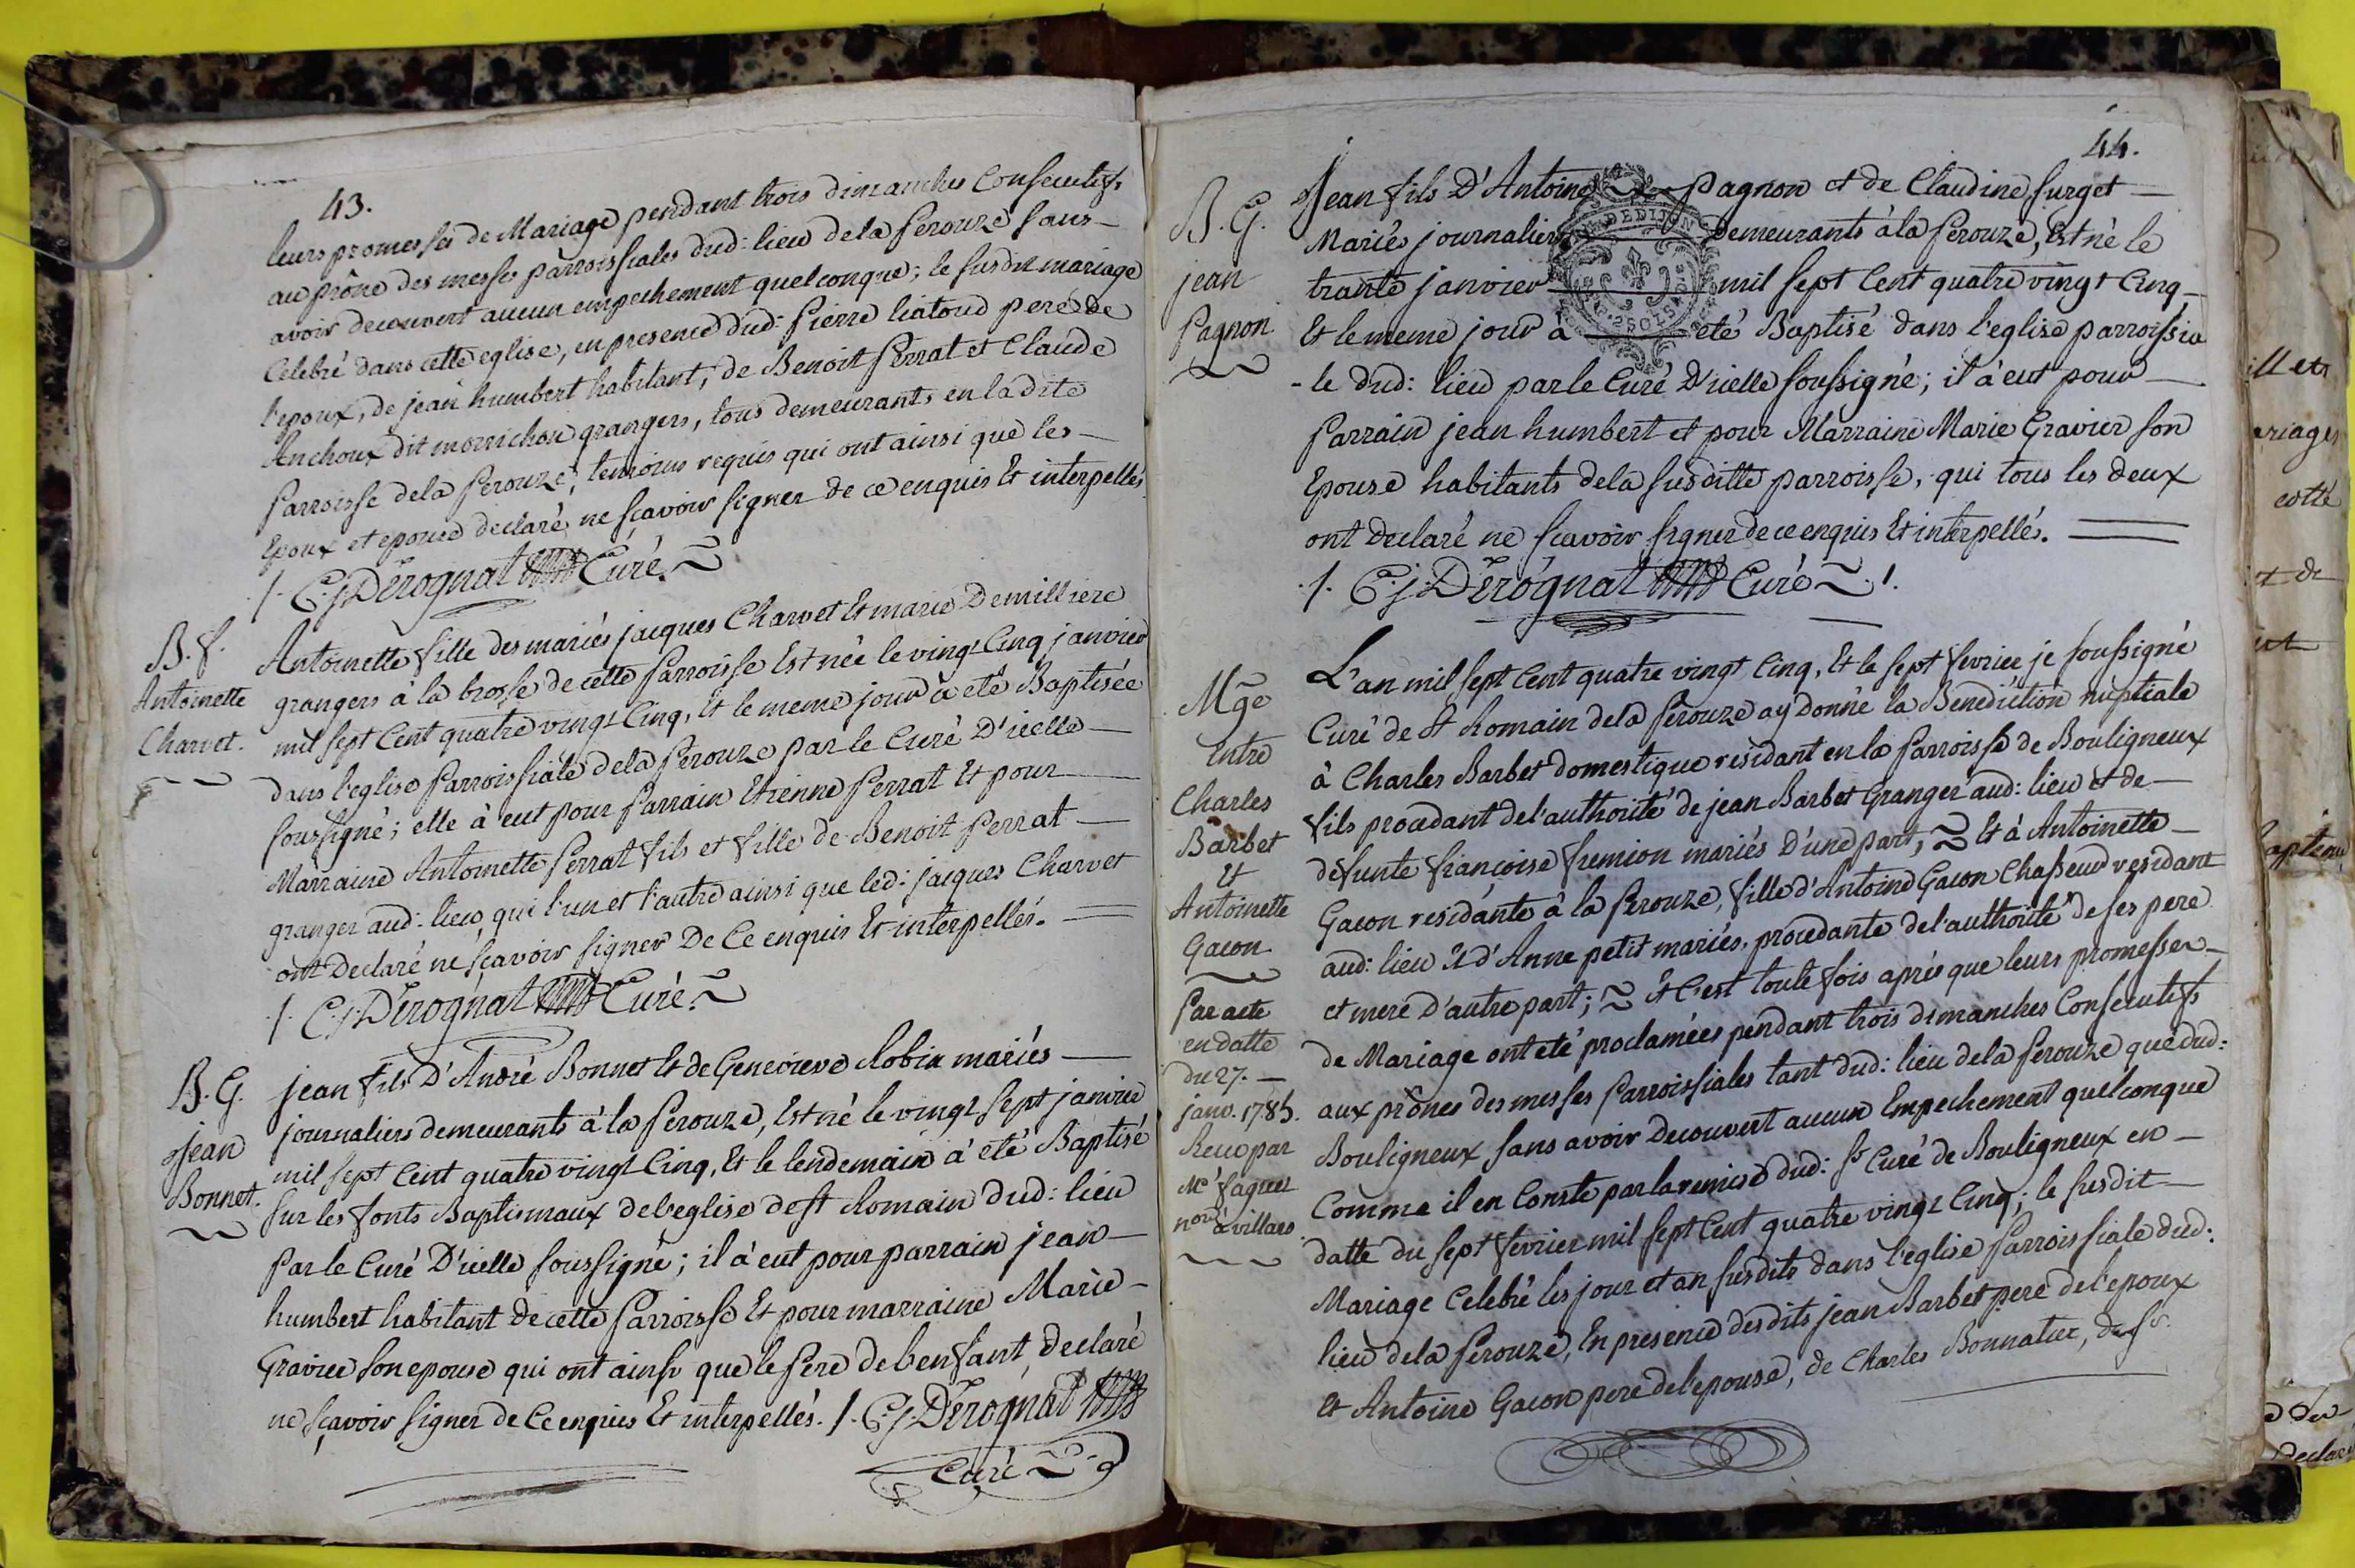 43.
leurs promesses de Mariage pendant trois dimanches Consecutifs
au prône des messes parroissiales dud: lieu dela Perouze sans
avoir decouvert aucun empechement quelconque; le susdit mariage
Celebré dans cette eglise, en presence dud: Pierre liatoud pere de
l'epoux, de jean humbert habitant, de Benoit Perrat et Claude
Anchoux dit morrichon grangers, tous demeurants en ladite
Parroisse dela Perouze, temoins requis qui ont ainsi que les
Epoux et epouse declaré ne sçavoir signer de ce enquis Et interpellés
/. C. j. Derognat Curé.
B. f.
Antoinette
Charvet.
Antoinette fille des mariés jacques Charvet Et marie Demilliere
grangers à la brosse de cette Parroisse Est née le vingt Cinq janvier
mil sept Cent quatre vingt Cinq, Et le meme jour à eté Baptisée
dans l'eglise Parroissiale dela Perouze par le Curé D'icelle
soussigné; elle à eut pour Parrain Etienne Perrat Et pour
Marraine Antoinette Perrat fils et fille de Benoit Perrat
granger aud: lieu, qui l'un et l'autre ainsi que led: jacques Charvet
ont Declaré ne sçavoir signer De Ce enquis Et interpellés.
/. C. j. Derognat Curé.
B. G.
jean
Bonnet.
jean fils D'André Bonnet Et de Genevieve Robin mariés
journaliers demeurants à la Perouze, Est né le vingt sept janvier
mil sept Cent quatre vingt Cinq, Et le lendemain à eté Baptisé
sur les fonts Baptismaux de l'eglise de st Romain dud: lieu
Par le Curé D'icelle soussigné; il à eut pour parrain jean
humbert habitant de cette Parroisse Et pour marraine Marie
Gravier son epouse qui ont ainsi que le Pere de l'enfant Declaré
ne sçavoir signer de Ce enquis Et interpellés. /. C. j. Derognat
Curé
44.
B. G.
jean
Pagnon
Jean fils D'Antoine Pagnon et de Claudine surget
Mariés journaliers Demeurants à la Perouze, Est né le
trante janvier mil sept Cent quatre vingt Cinq
Et le meme jour à eté Baptisé dans l'eglise parroissia
-le dud: lieu par le Curé D'icelle soussigné; il à eut pour
Parrain jean humbert et pour Marraine Marie Gravier son
Epouse habitants dela susditte parroisse, qui tous les deux
ont declaré ne sçavoir signer de ce enquis Et interpellés.
/. C. j. Derognat Curé /.
Mge
Entre
Charles
Barbet
Et
Antoinette
Gacon
Par acte
en datte
du 27.
janv. 1785.
Recu par
Me faguet
nore à villars
L'an mil sept Cent quatre vingt Cinq, Et le sept fevrier je soussigné
Curé de st Romain dela Perouze ay donné la Benediction nuptiale
à Charles Barbet domestique residant en la Parroisse de Bouligneux
fils procedant de l'authorité de jean Barbet Granger aud: lieu et de
defunte françoise fremion mariés D'une part; Et à Antoinette
Gacon residante à la Perouze, fille d'Antoine Gacon Chasseur residant
aud: lieu Et d'Anne petit mariés, procedante de l'authorité de ses pere
et mere D'autre part; Et C'est toute fois après que leurs promesses
de Mariage ont eté proclamées pendant trois dimanches Consecutifs
aux prônes des messes Parroissiales tant dud: lieu dela Perouze que dud:
Bouligneux sans avoir decouvert aucun Empechement quelconque
Comme il en Conste par la remise dud: sr Curé de Bouligneux en
datte du sept fevrier mil sept Cent quatre vingt Cinq; le susdit
Mariage Celebré les jour et an susdits dans l'eglise Parroissiale dud:
lieu dela Perouze, En presence desdits jean Barbet pere de l'epoux
Et Antoine Gacon pere de l'epouse, de Charles Bonnatier,